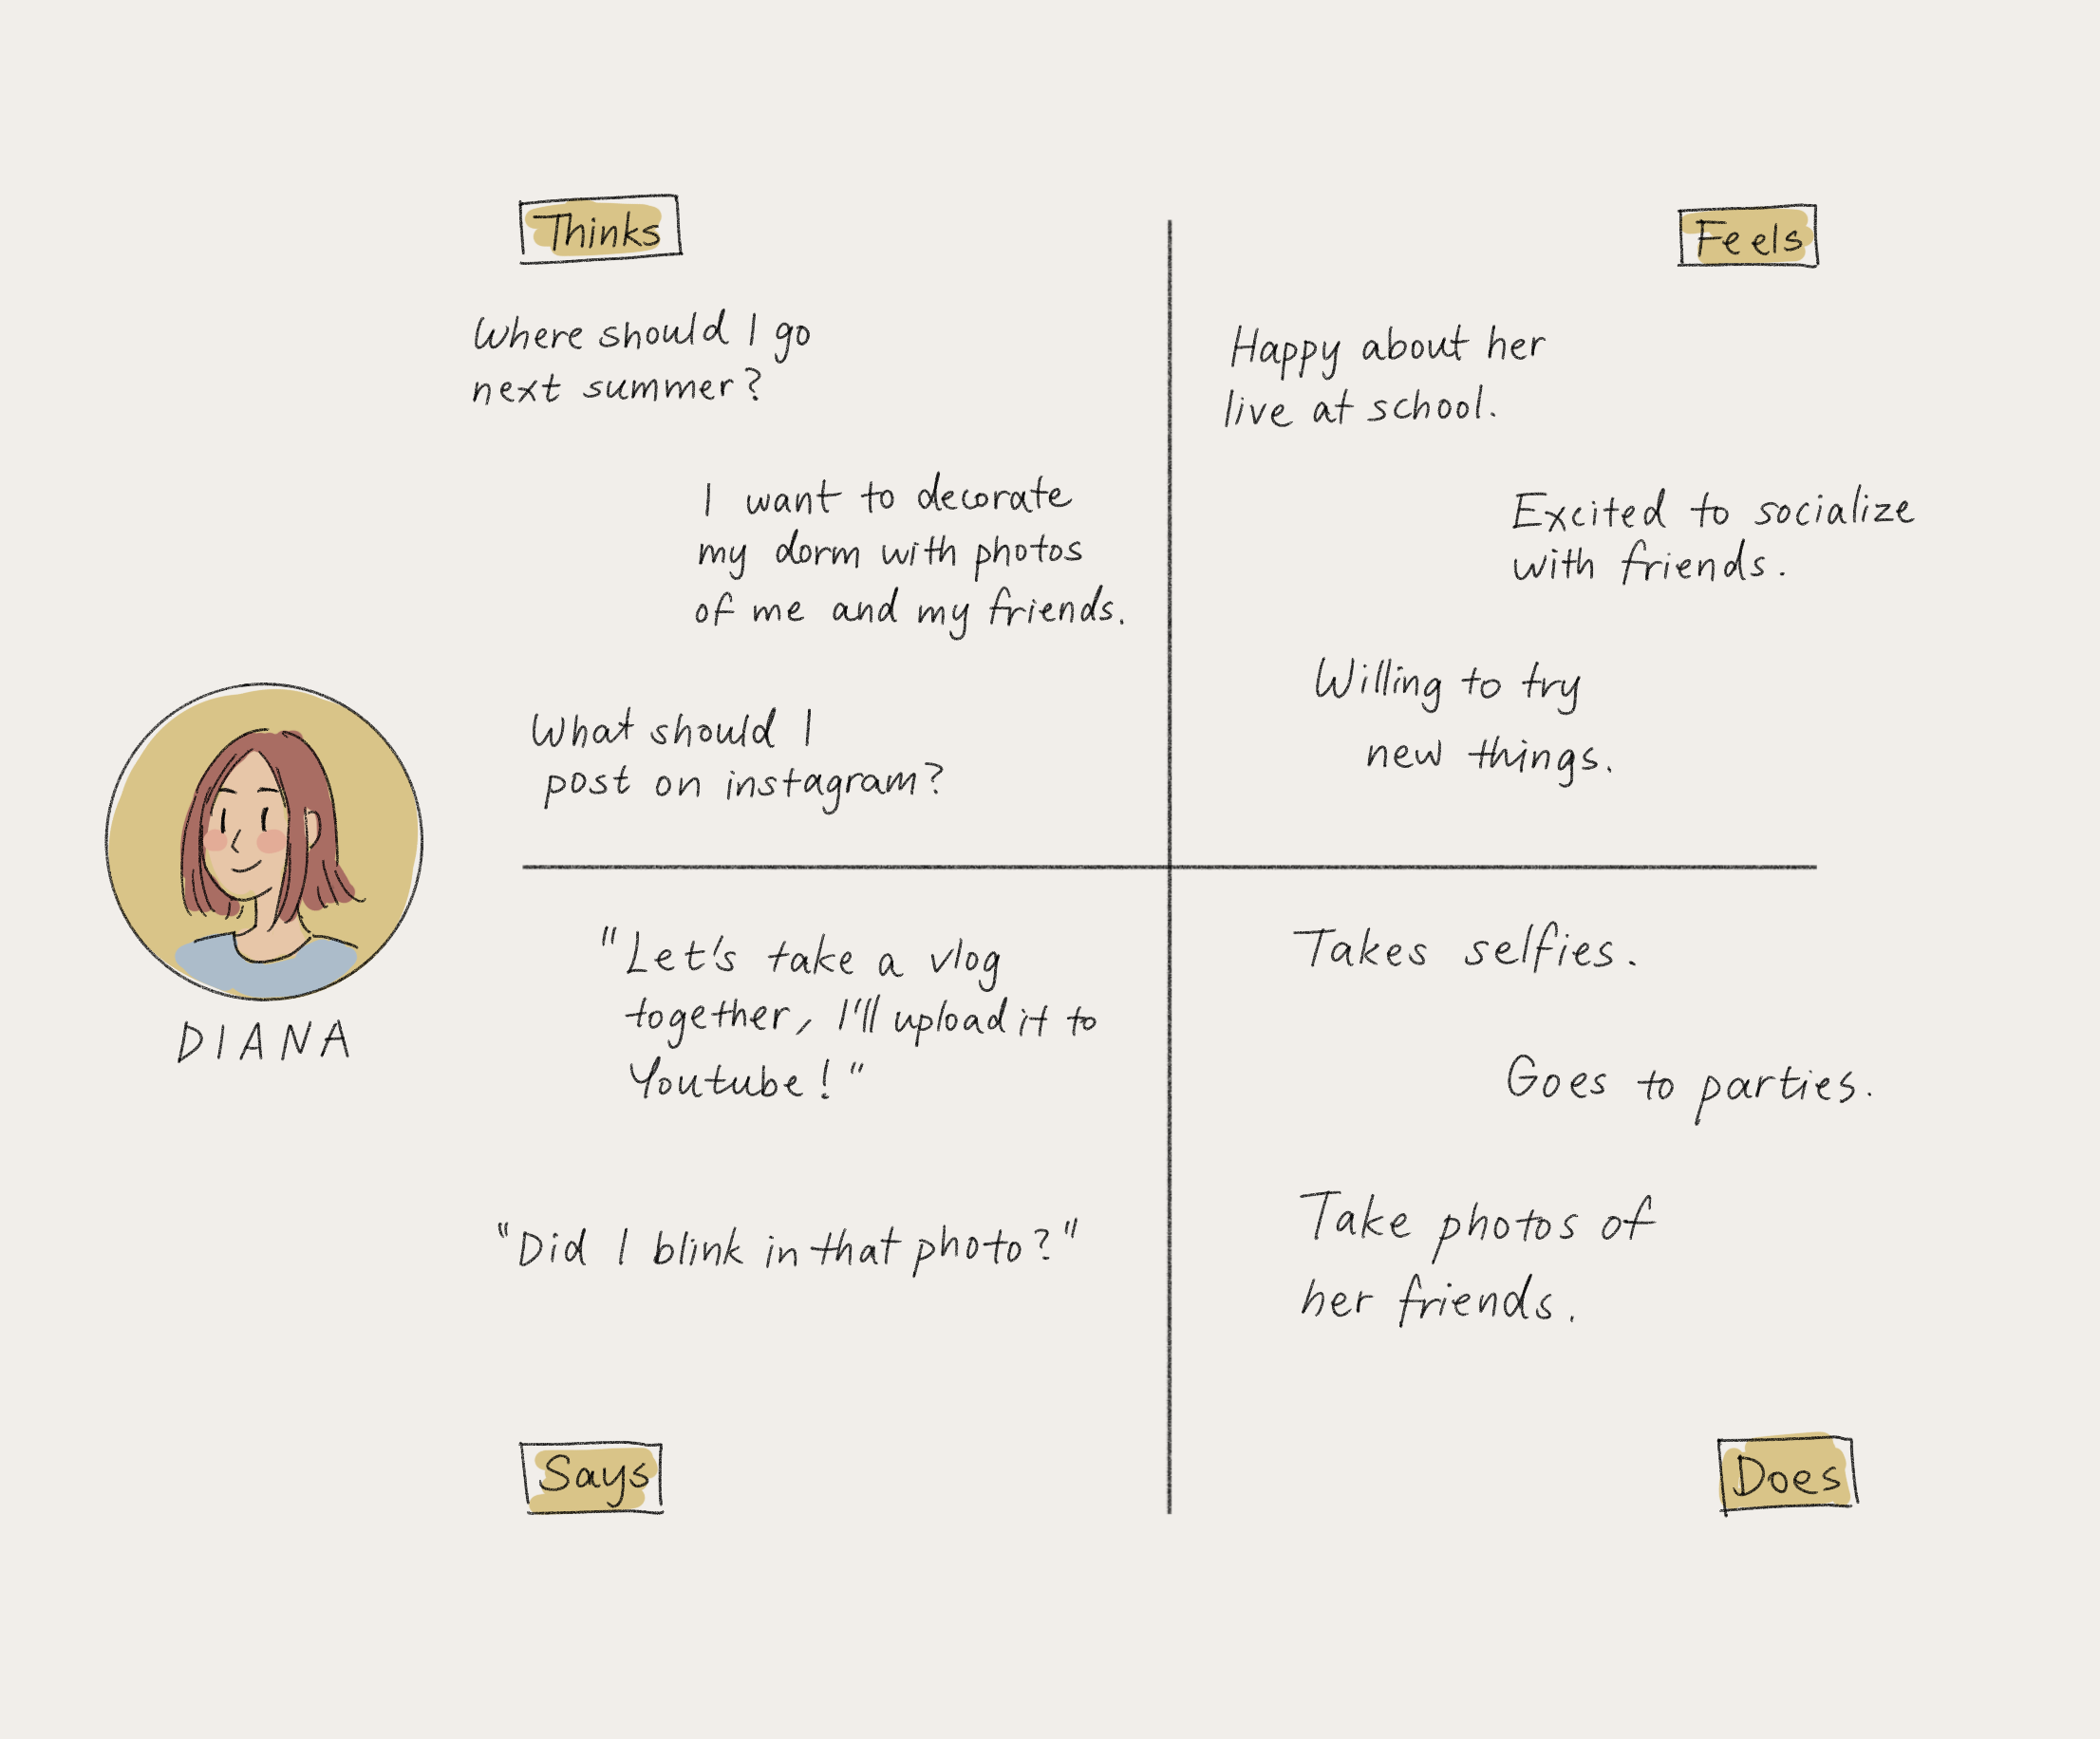 Thinks
Where should I go
next summer?
I want to decorate
my dorm with photos
of me and my friends.
What should I
post on instagram?
Feels
Happy about her
live at school.
Excited to socialize
with friends.
Willing to try
new things.
DIANA
"Let's take a vlog
together, I'll upload it to
Youtube!"
"Did I blink in that photo?"
Says
Takes selfies.
Goes to parties.
Take photos of
her friends.
Does